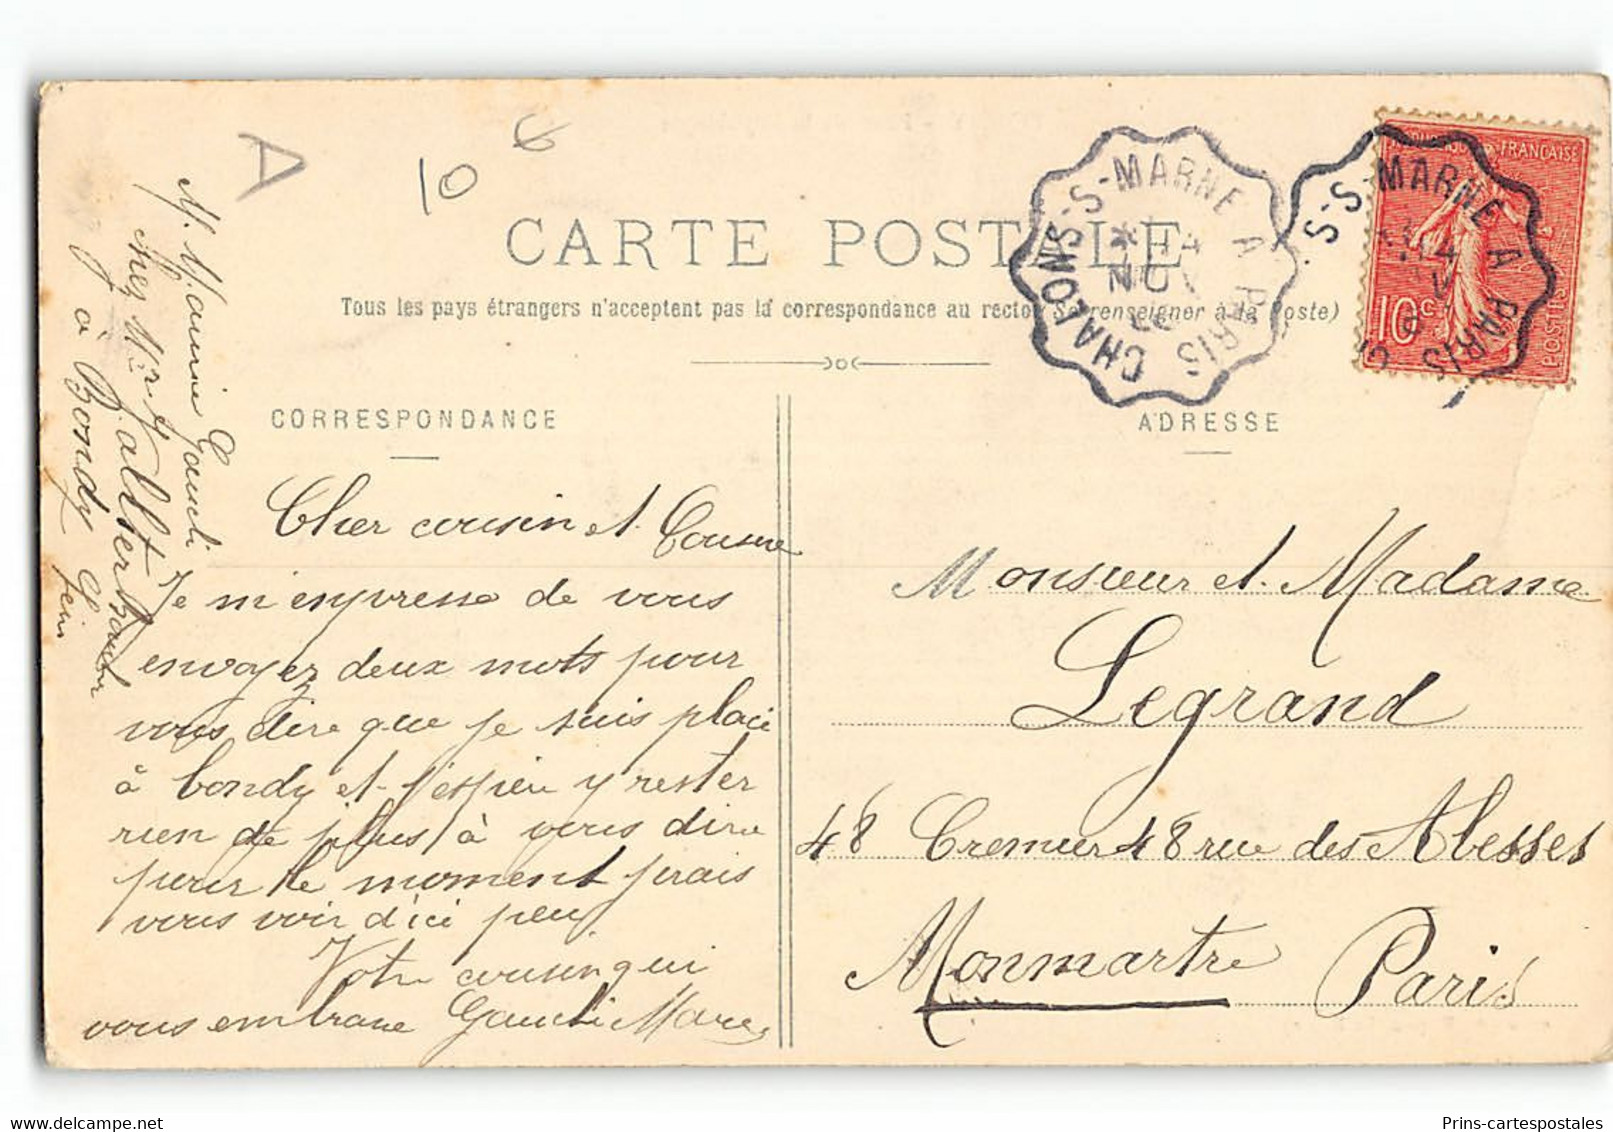 A
10
CARTE POSTALE
Tous les pays étrangers n'acceptent pas la correspondance au recto (Se renseigner à la Poste)
CHALONS-S-MARNE A PARIS
NOV
S-S-MARNE A PARIS
RÉPUBLIQUE FRANÇAISE
10c
POSTES
CORRESPONDANCE
ADRESSE
Cher cousin et Cousine
Je m'enpresse de vous
envoyez deux mots pour
vous dire que je suis placé
à bondy et j'espère y rester
rien de plus à vous dire
pour le moment jirais
vous voir d'ici peu
Votre cousin qui
vous embrase Gaucli Marc
Monsieur et Madame
Legrand
48 Cremier 48 rue des Abesses
Monmartre Paris
chez Mr
à Bondy Seine
Prins-cartespostales